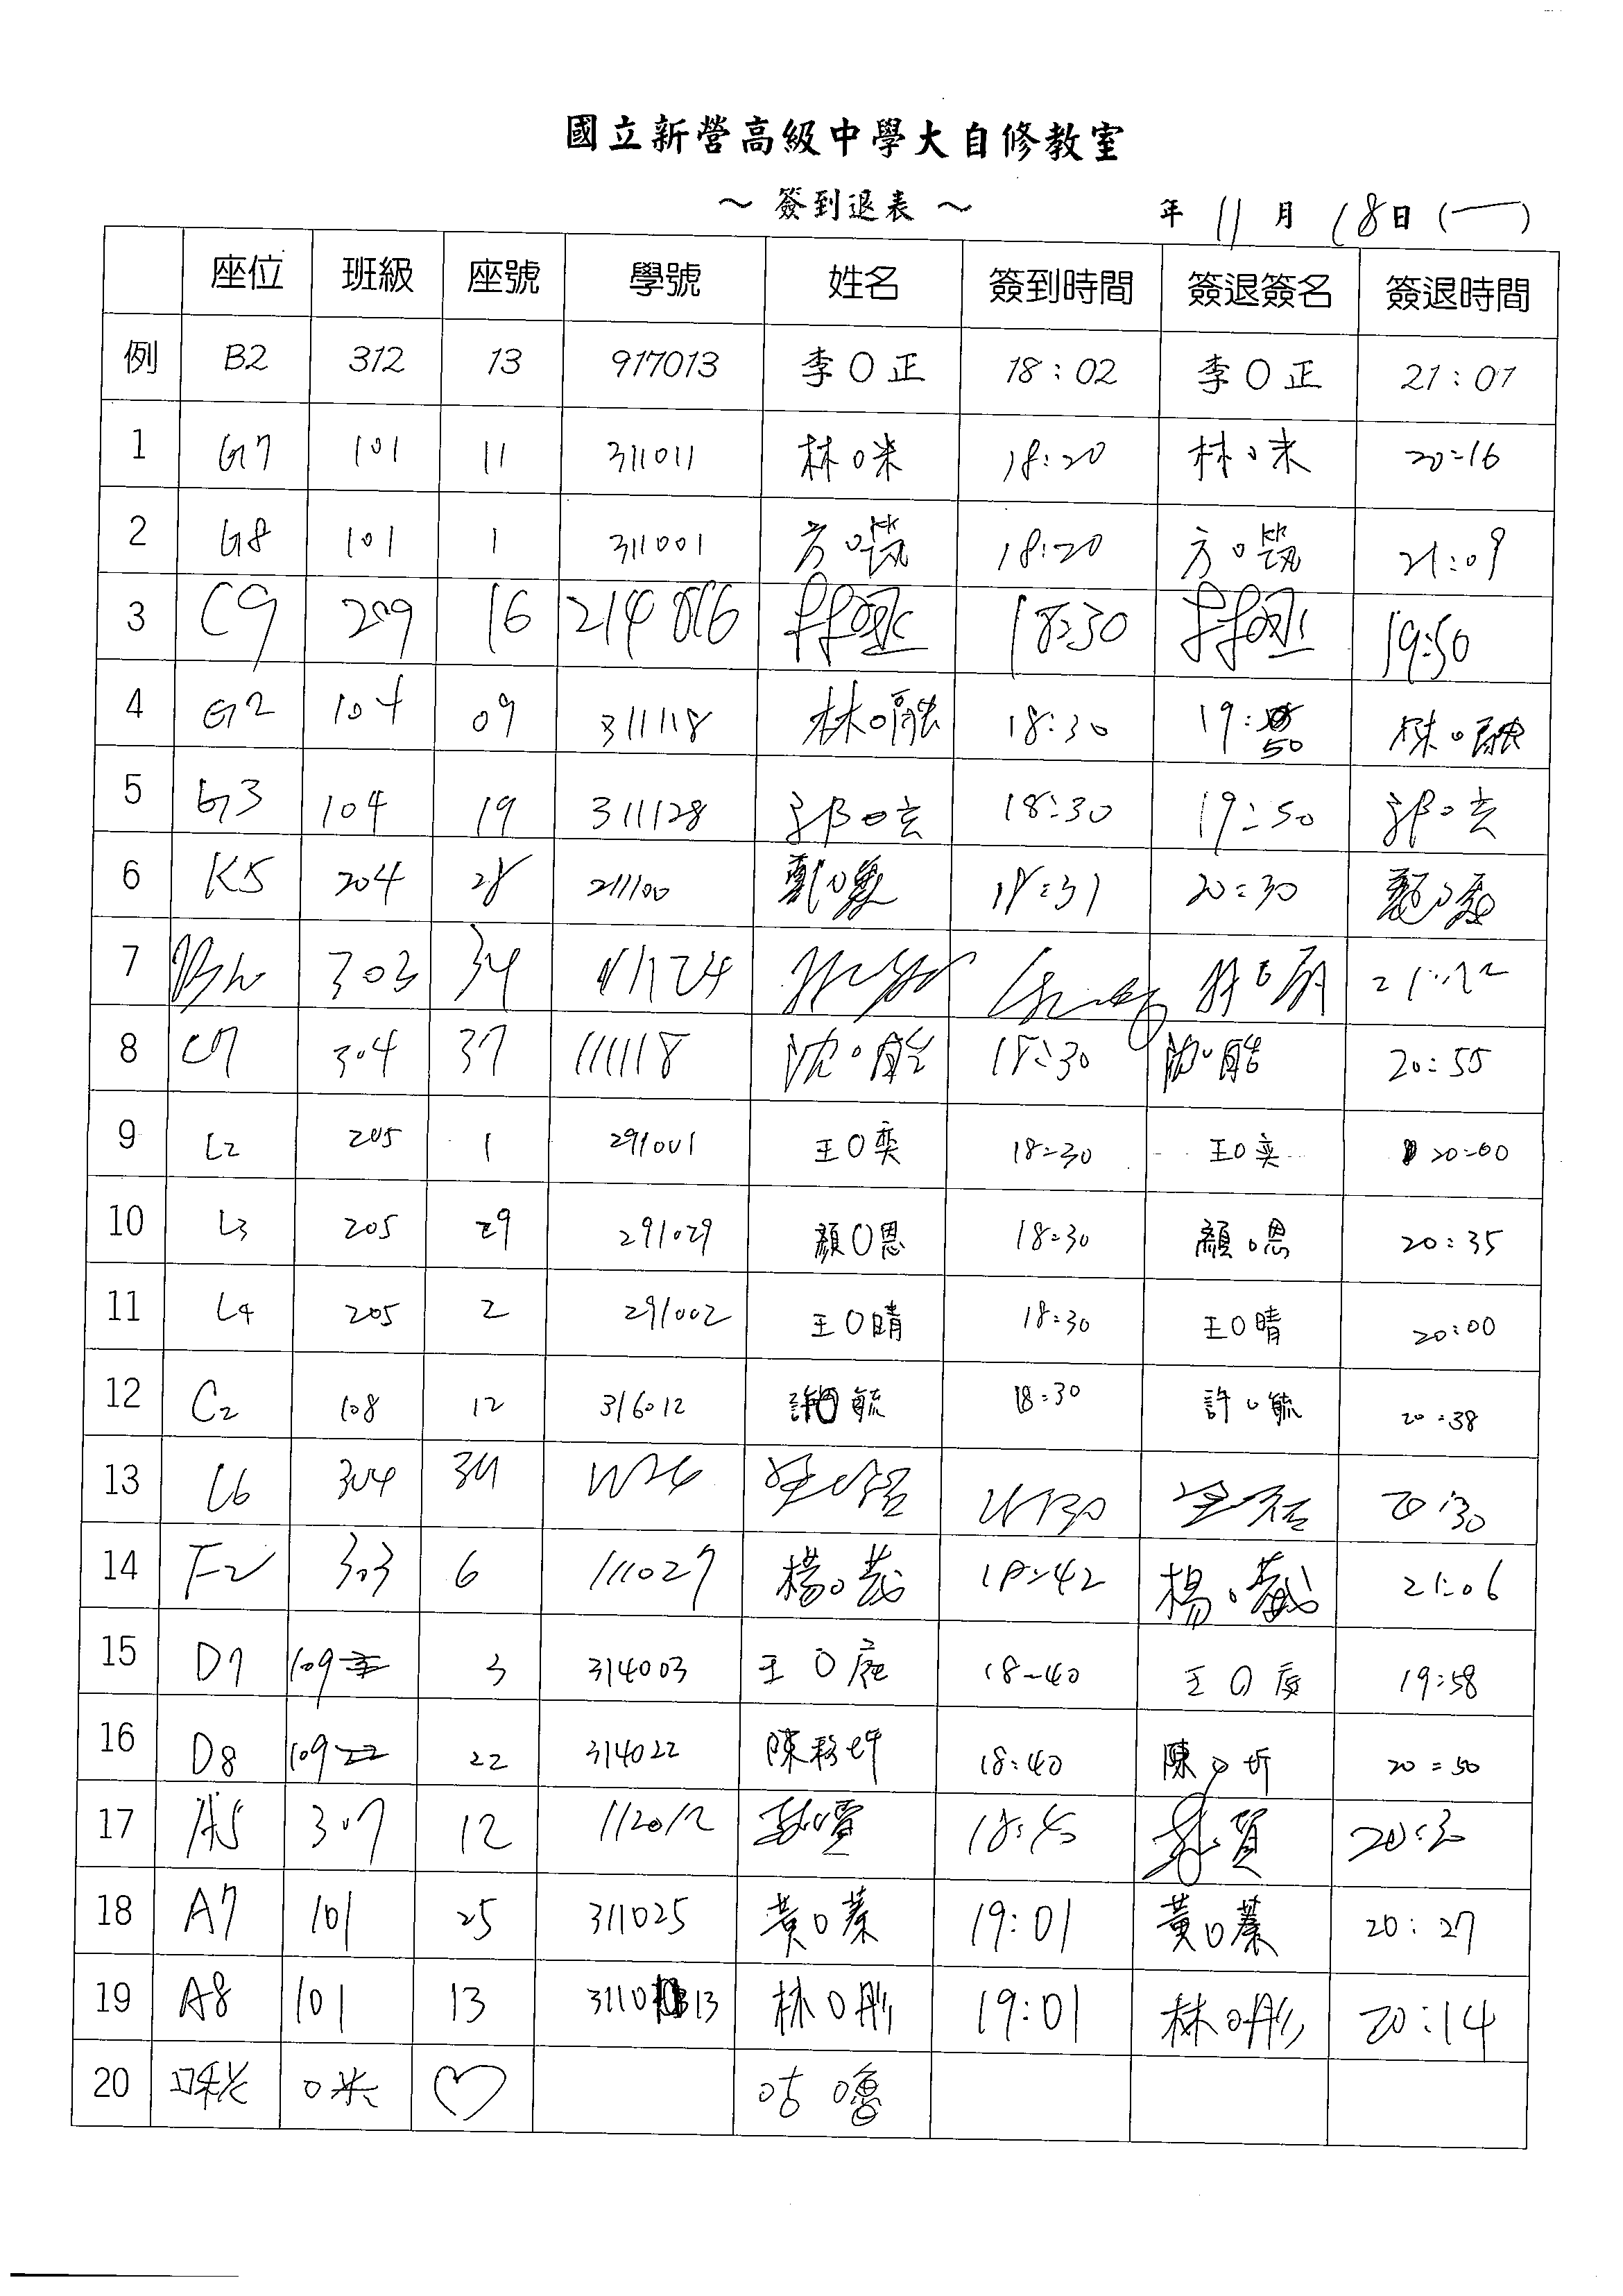 國立新營高級中學大自修教室
～ 簽到退表 ～ 年 11 月 18 日 (一)
座位 班級 座號 學號 姓名 簽到時間 簽退簽名 簽退時間
例 B2 312 13 917013 李O正 18:02 李O正 21:01
1 G7 101 11 311011 林O咪 18:20 林O未 20:16
2 G8 101 1 311001 方O 18:20 方O 21:09
3 C9 209 16 214016 18:30 19:50
4 G2 104 09 311118 林O融 18:30 19:50 林O融
5 G3 104 19 311128 郭O言 18:30 19:50 郭O言
6 K5 204 28 211100 18:31 20:30
7 303 34 111124 21:12
8 C7 304 37 111118 沈O 18:30 沈O 20:55
9 L2 205 1 291001 王O奕 18:30 王O奕 20:00
10 L3 205 29 291029 顏O恩 18:30 顏O恩 20:35
11 L4 205 2 291002 王O晴 18:30 王O晴 20:00
12 C2 108 12 316012 許O毓 18:30 許O毓 20:38
13 C6 304 34 20:30
14 F2 303 6 111027 楊O葳 18:42 楊O葳 21:06
15 D7 109 3 314003 王O 18:40 王O 19:58
16 D8 109 22 314022 陳 18:40 陳O圻 20:50
17 A5 307 12 112012 18:40 20:30
18 A7 101 25 311025 黃O蓁 19:01 黃O蓁 20:27
19 A8 101 13 311013 林O彤 19:01 林O彤 20:14
20 ♡ 咕嚕